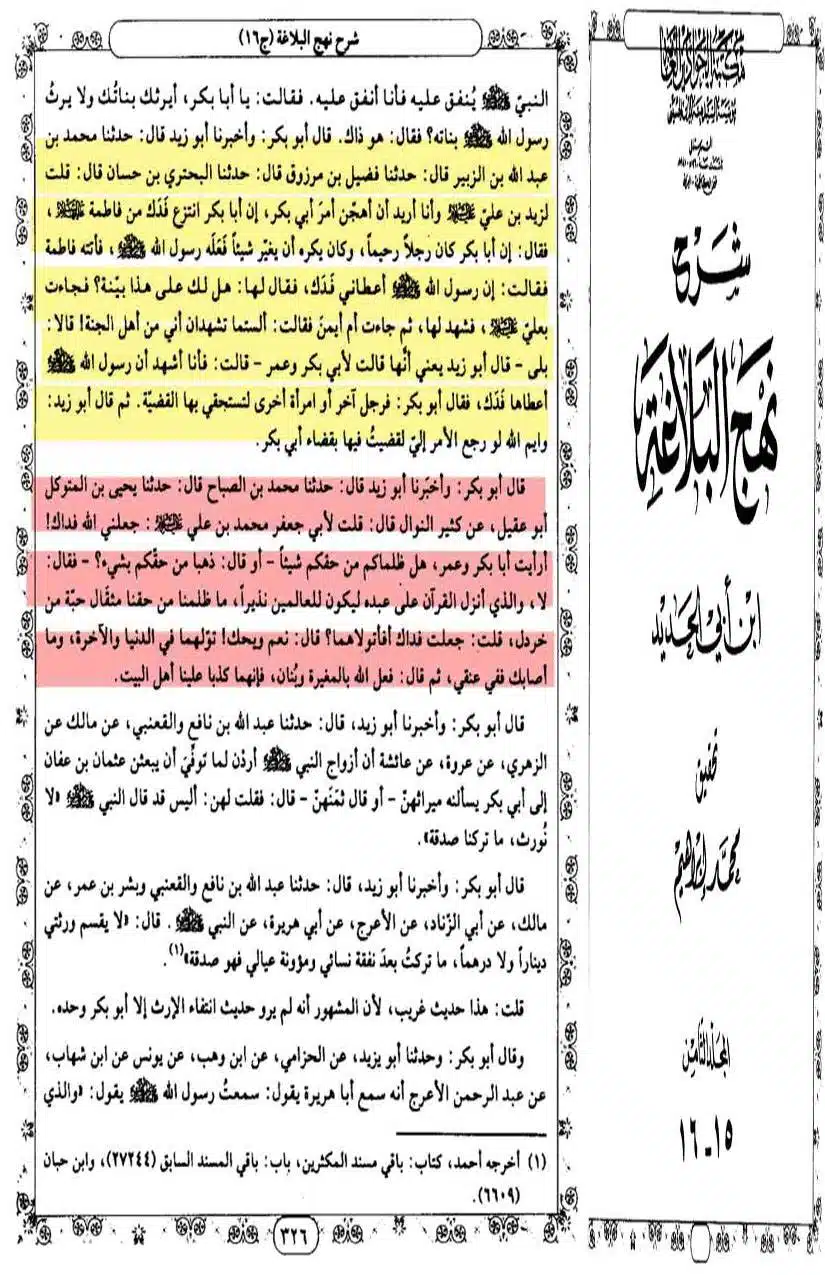 شرح نهج البلاغة (ج١٦)
النبيّ ﷺ يُنفق عليه فأنا أنفق عليه. فقالت: يا أبا بكر، أيرثك بناتُك ولا يرثُ
رسول الله ﷺ بناته؟ فقال: هو ذاك. قال أبو بكر: وأخبرنا أبو زيد قال: حدثنا محمد بن
عبد الله بن الزبير قال: حدثنا فضيل بن مرزوق قال: حدثنا البحتري بن حسان قال: قلت
لزيد بن عليّ عليه السلام وأنا أريد أن أهجّن أمرَ أبي بكر، إن أبا بكر انتزع فَدَك من فاطمة عليها السلام،
فقال: إن أبا بكر كان رجلاً رحيماً، وكان يكره أن يغيّر شيئاً فَعَلَه رسول الله ﷺ، فأتته فاطمة
فقالت: إن رسول الله ﷺ أعطاني فَدَك، فقال لها: هل لك على هذا بيّنة؟ فجاءت
بعليّ عليه السلام، فشهد لها، ثم جاءت أم أيمنَ فقالت: ألستما تشهدان أني من أهل الجنة! قالا:
بلى - قال أبو زيد يعني أنَّها قالت لأبي بكر وعمر - قالت: فأنا أشهد أن رسول الله ﷺ
أعطاها فَدَك، فقال أبو بكر: فرجل آخر أو امرأة أخرى لتستحقي بها القضيّة. ثم قال أبو زيد:
وايم الله لو رجع الأمر إليّ لقضيتُ فيها بقضاء أبي بكر.
قال أبو بكر: وأخبَرنا أبو زيد قال: حدثنا محمد بن الصباح قال: حدثنا يحيى بن المتوكل
أبو عقيل، عن كثير النوال قال: قلت لأبي جعفر محمد بن علي عليه السلام: جعلني الله فداك!
أرأيت أبا بكر وعمر، هل ظلماكم من حقكم شيئاً - أو قال: ذهبا من حقّكم بشيء؟ - فقال:
لا، والذي أنزل القرآن على عبده ليكون للعالمين نذيراً، ما ظلمنا من حقنا مثقال حبّة من
خردل، قلت: جعلت فداك أفأتولاهما؟ قال: نعم ويحك! تولّهما في الدنيا والآخرة، وما
أصابك ففي عنقي، ثم قال: فعل الله بالمغيرة وبُنان، فإنهما كذبا علينا أهل البيت.
قال أبو بكر: وأخبرنا أبو زيد، قال: حدثنا عبد الله بن نافع والقعنبي، عن مالك عن
الزهري، عن عروة، عن عائشة أن أزواج النبي ﷺ أردْن لما توفّيَ أن يبعثن عثمان بن عفان
إلى أبي بكر يسألنه ميراثهنّ - أو قال ثمُنَهنّ - قال: فقلت لهن: أليس قد قال النبي ﷺ «لا
نُورث، ما تركنا صدقة».
قال أبو بكر: وأخبرنا أبو زيد، قال: حدثنا عبد الله بن نافع والقعنبي وبشر بن عمر، عن
مالك، عن أبي الزّناد، عن الأعرج، عن أبي هريرة، عن النبي ﷺ. قال: «لا يقسم ورثتي
ديناراً ولا درهماً، ما تركتُ بعدَ نفقة نسائي ومؤونة عيالي فهو صدقة»(١).
قلت: هذا حديث غريب، لأن المشهور أنه لم يرو حديث انتفاء الإرث إلا أبو بكر وحده.
وقال أبو بكر: وحدثنا أبو يزيد، عن الحزامي، عن ابن وهب، عن يونس عن ابن شهاب،
عن عبد الرحمن الأعرج أنه سمع أبا هريرة يقول: سمعتُ رسول الله ﷺ يقول: «والذي
(١) أخرجه أحمد، كتاب: باقي مسند المكثرين، باب: باقي المسند السابق (٢٧٢٤٤)، وابن حبان
(٦٦٠٩).
٣٢٦
شرح
نهج البلاغة
ابن أبي الحديد
تحقيق
محمد إبراهيم
المجلد الثامن
١٥-١٦